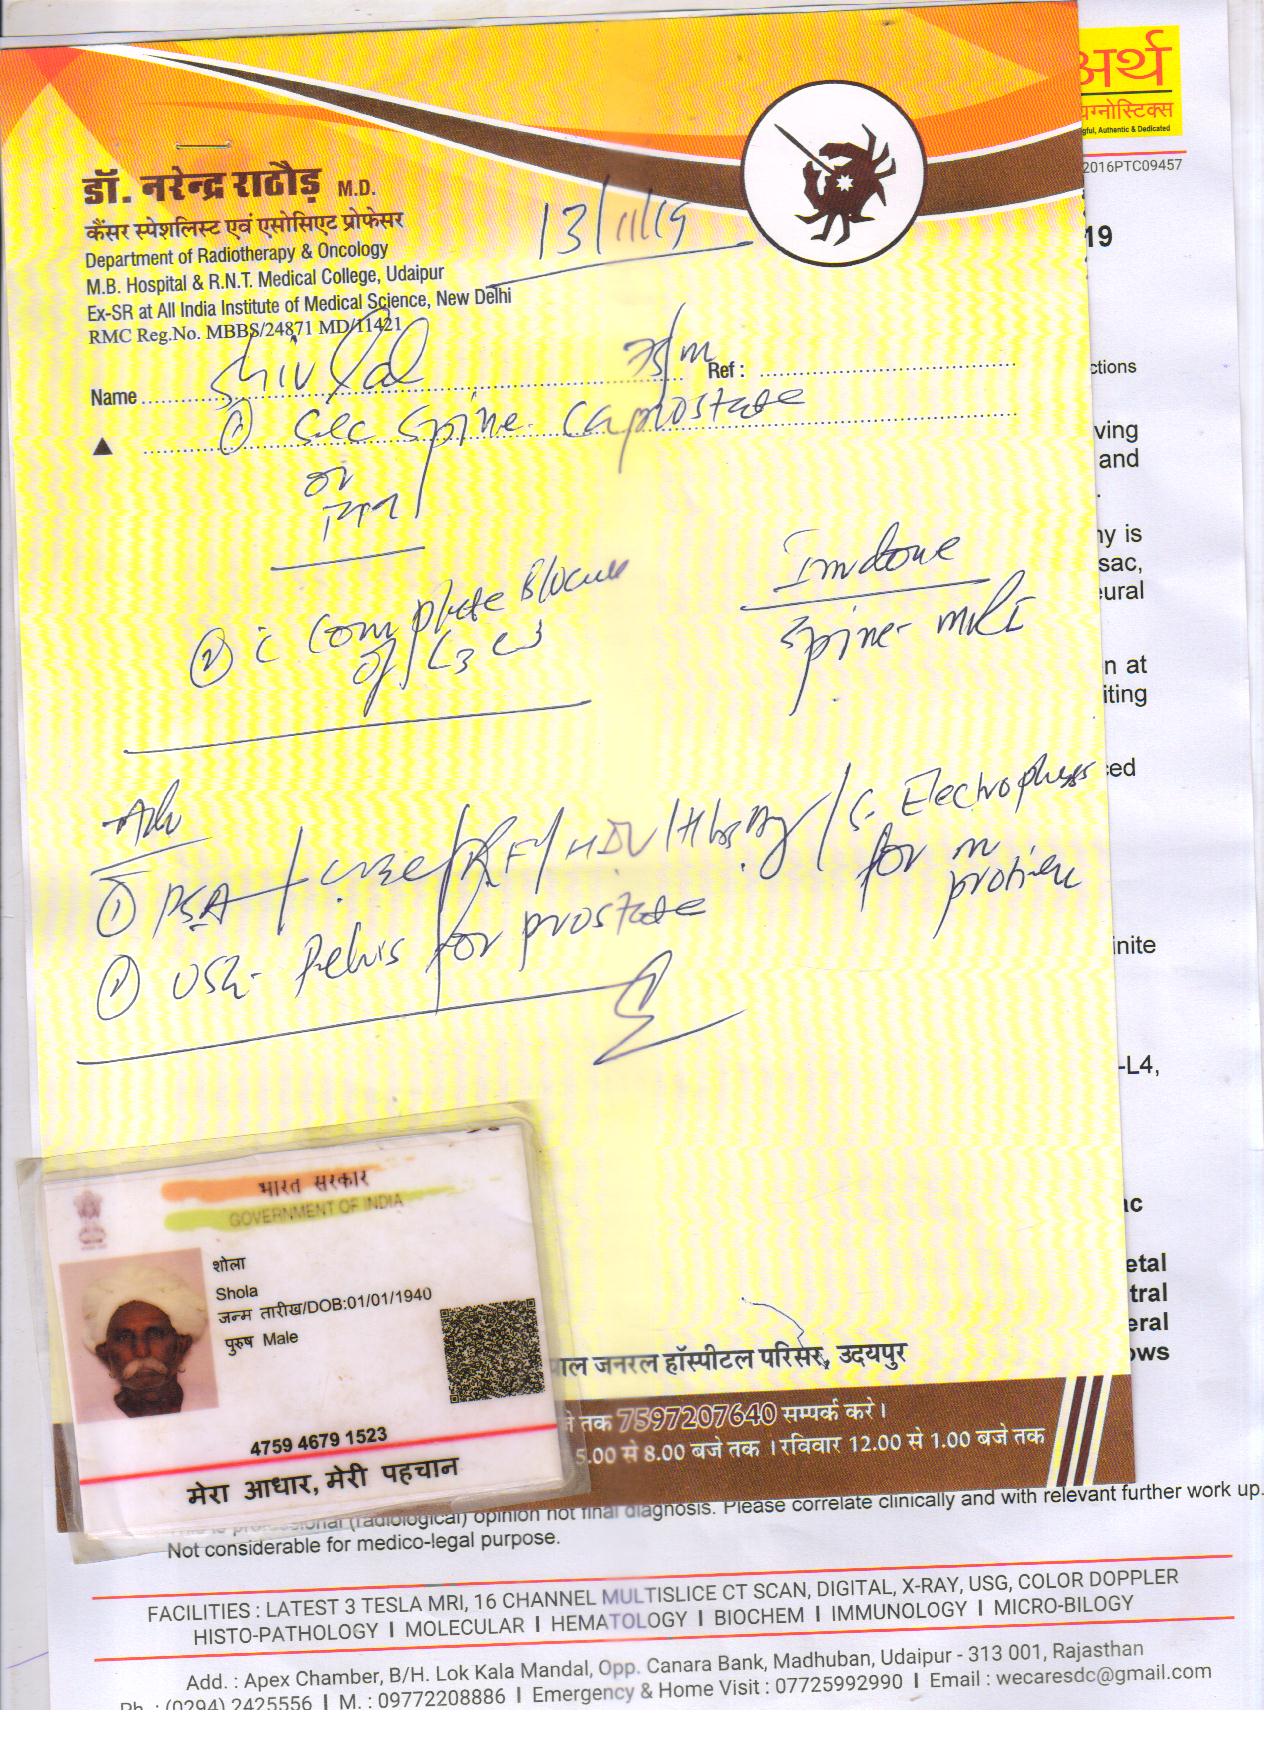 अर्थ
यग्नोस्टिक्स
gful, Authentic & Dedicated
2016PTC09457
19
डॉ. नरेन्द्र राठौड़ M.D.
कैंसर स्पेशलिस्ट एवं एसोसिएट प्रोफेसर
Department of Radiotherapy & Oncology
M.B. Hospital & R.N.T. Medical College, Udaipur
Ex-SR at All India Institute of Medical Science, New Delhi
RMC Reg.No. MBBS/24871 MD/11421
13/11/19
Name Shiv Lal 75/m Ref :
① Sec spine. Ca prostate
or
② c Complete Blocude
of
Inv done
Spine- MRI
Adv
① PSA / CBC / RFT / HIV / HbsAg / S. Electrophesis
for m
protiene
② USG- Pelvis for prostate
ctions
ving
and
ny is
sac,
eural
n at
iting
ced
inite
-L4,
ac
etal
tral
eral
ows
भारत सरकार
GOVERNMENT OF INDIA
शोला
Shola
जन्म तारीख/DOB:01/01/1940
पुरुष Male
4759 4679 1523
मेरा आधार, मेरी पहचान
पाल जनरल हॉस्पीटल परिसर, उदयपुर
जे तक 7597207640 सम्पर्क करे।
5.00 से 8.00 बजे तक । रविवार 12.00 से 1.00 बजे तक
This is professional (radiological) opinion not final diagnosis. Please correlate clinically and with relevant further work up.
Not considerable for medico-legal purpose.
FACILITIES : LATEST 3 TESLA MRI, 16 CHANNEL MULTISLICE CT SCAN, DIGITAL, X-RAY, USG, COLOR DOPPLER
HISTO-PATHOLOGY I MOLECULAR I HEMATOLOGY I BIOCHEM I IMMUNOLOGY I MICRO-BILOGY
Add. : Apex Chamber, B/H. Lok Kala Mandal, Opp. Canara Bank, Madhuban, Udaipur - 313 001, Rajasthan
Ph. : (0294) 2425556 I M. : 09772208886 I Emergency & Home Visit : 07725992990 I Email : wecaresdc@gmail.com